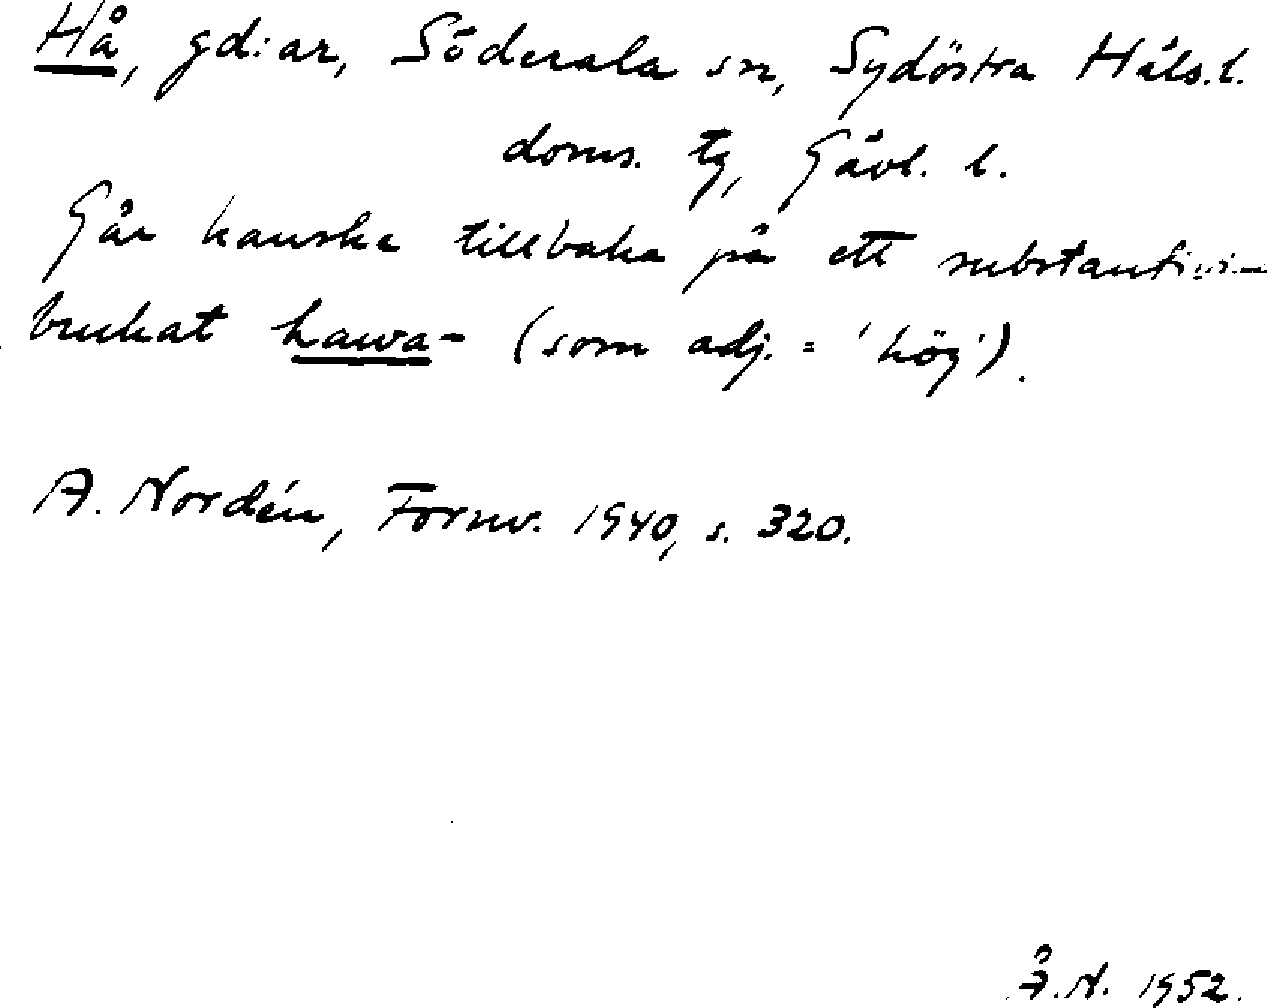 Hå, gd:ar, Söderala sn, Sydöstra Häls.l.
doms. tg, Gävl. l.
Går kanske tillbaka på ett substantivi-
brukat hawa- (som adj. = 'hög').
A. Nordén, Fornv. 1940, s. 320.
Å.N. 1952.